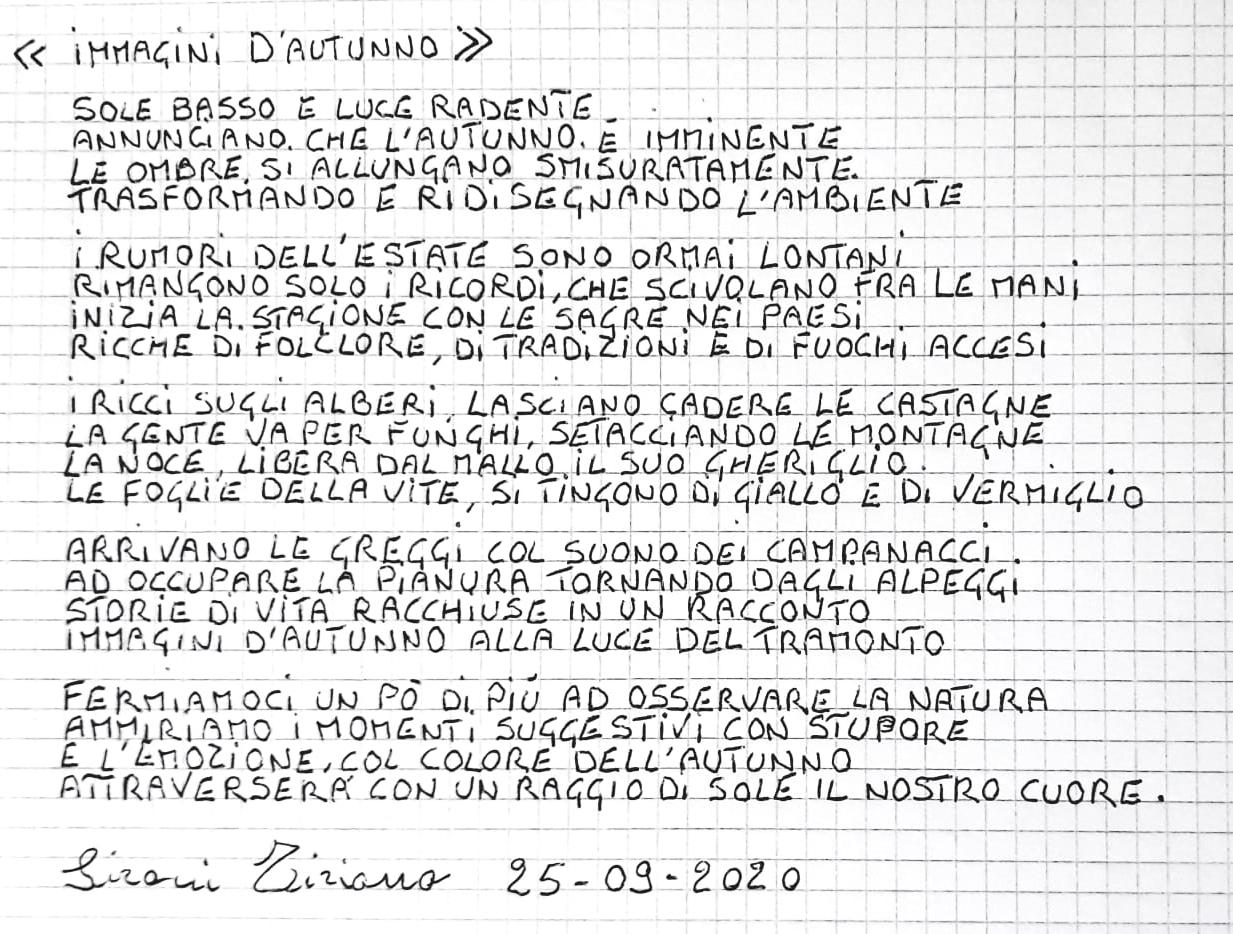 « IMMAGINI D'AUTUNNO »
SOLE BASSO E LUCE RADENTE
ANNUNCIANO CHE L'AUTUNNO È IMMINENTE
LE OMBRE SI ALLUNGANO SMISURATAMENTE
TRASFORMANDO E RIDISEGNANDO L'AMBIENTE
I RUMORI DELL'ESTATE SONO ORMAI LONTANI
RIMANGONO SOLO I RICORDI, CHE SCIVOLANO FRA LE MANI
INIZIA LA STAGIONE CON LE SAGRE NEI PAESI
RICCHE DI FOLCLORE, DI TRADIZIONI E DI FUOCHI ACCESI
I RICCI SUGLI ALBERI, LASCIANO CADERE LE CASTAGNE
LA GENTE VA PER FUNGHI, SETACCIANDO LE MONTAGNE
LA NOCE, LIBERA DAL MALLO IL SUO GHERIGLIO
LE FOGLIE DELLA VITE, SI TINGONO DI GIALLO E DI VERMIGLIO
ARRIVANO LE GREGGI COL SUONO DEI CAMPANACCI
AD OCCUPARE LA PIANURA TORNANDO DAGLI ALPEGGI
STORIE DI VITA RACCHIUSE IN UN RACCONTO
IMMAGINI D'AUTUNNO ALLA LUCE DEL TRAMONTO
FERMIAMOCI UN PÒ DI PIÙ AD OSSERVARE LA NATURA
AMMIRIAMO I MOMENTI SUGGESTIVI CON STUPORE
E L'EMOZIONE, COL COLORE DELL'AUTUNNO
ATTRAVERSERÀ CON UN RAGGIO DI SOLE IL NOSTRO CUORE.
Sironi Tiziano 25-09-2020